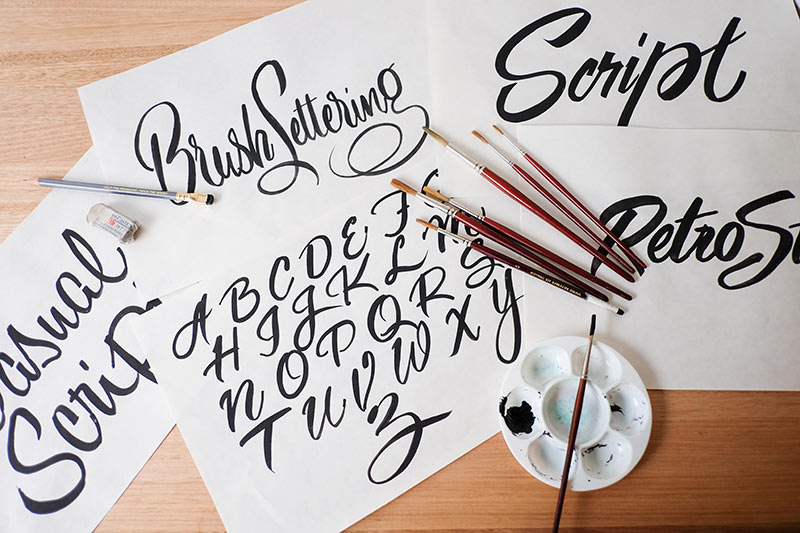 Brush Lettering
Script
PetroSt
Casual
Scrip
A B C D E F
H I J K L M
N O P Q R S
T U V W X Y
Z